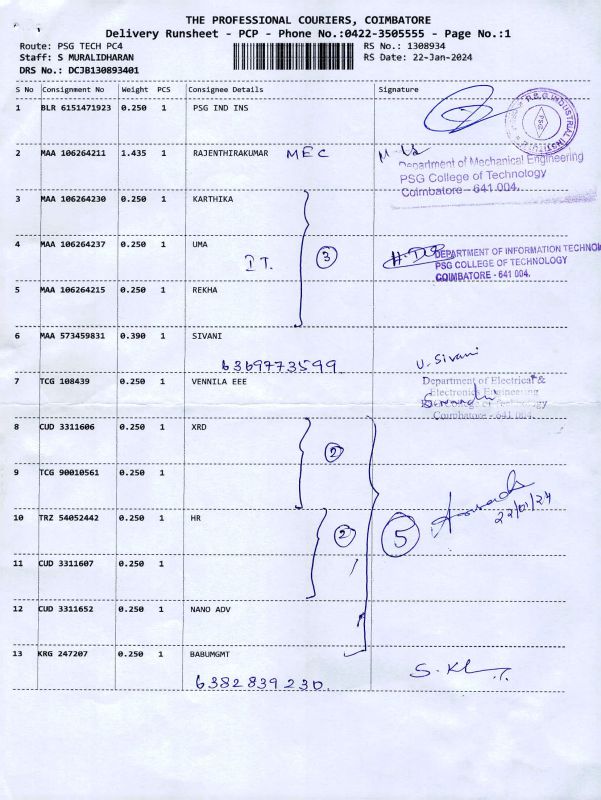 THE PROFESSIONAL COURIERS, COIMBATORE
Delivery Runsheet - PCP - Phone No.:0422-3505555 - Page No.:1
Route: PSG TECH PC4
RS No.: 1308934
Staff: S MURALIDHARAN
RS Date: 22-Jan-2024
DRS No.: DCJB130893401
S No Consignment No Weight PCS Consignee Details Signature
1 BLR 6151471923 0.250 1 PSG IND INS
P.S.G. INDUSTRIAL INSTITUTE
PSG
2 MAA 106264211 1.435 1 RAJENTHIRAKUMAR MEC
Department of Mechanical Engineering
PSG College of Technology
Coimbatore - 641 004.
3 MAA 106264230 0.250 1 KARTHIKA
4 MAA 106264237 0.250 1 UMA
IT. 3
DEPARTMENT OF INFORMATION TECHNOL
PSG COLLEGE OF TECHNOLOGY
COIMBATORE - 641 004.
5 MAA 106264215 0.250 1 REKHA
6 MAA 573459831 0.390 1 SIVANI
6369773599
U. Sivani
7 TCG 108439 0.250 1 VENNILA EEE
Department of Electrical &
Electronics Engineering
College of Technology
Coimbatore - 641 004.
8 CUD 3311606 0.250 1 XRD
2
9 TCG 90010561 0.250 1
10 TRZ 54052442 0.250 1 HR
2
5
22/01/24
11 CUD 3311607 0.250 1
12 CUD 3311652 0.250 1 NANO ADV
13 KRG 247207 0.250 1 BABUMGMT
6382839230.